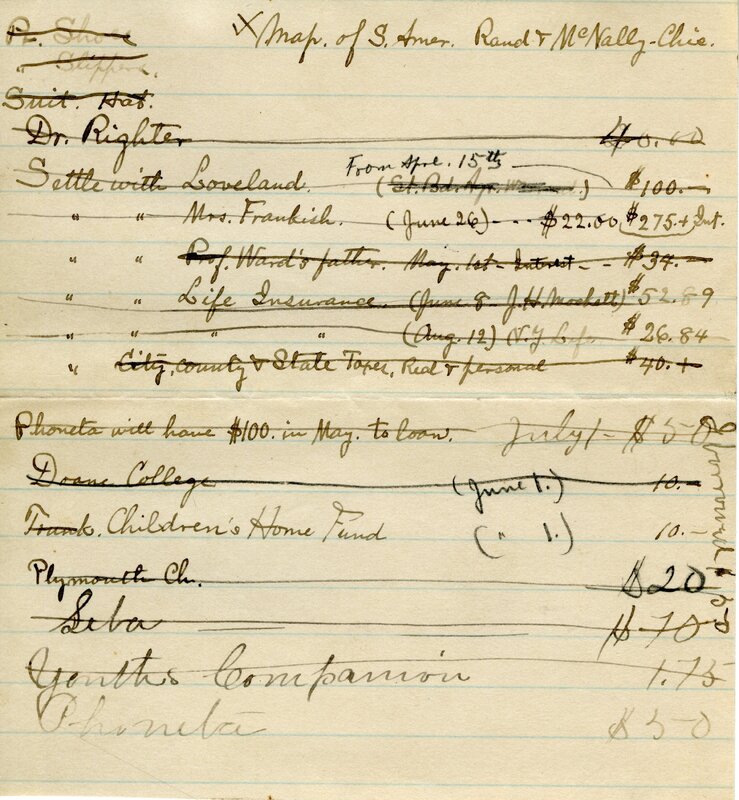 Pr. Shoes X Map. of S. Amer. Rand & McNally-Chic.
" Slippers.
Suit. Hat.
Dr. Righter 40.00
From Apr. 15th
Settle with Loveland. (St. Bd. Apr. ) $100.-
" " Mrs. Frankish. (June 26) - - - $22.00 $275.+ Int.
" " Prof. Ward's father. May. 1st - Interest - - $34.-
" " Life Insurance. (June 8 J.H. Mockett) $52.89
" " " (Aug. 12) N.Y Life $26.84
" City, county & State Taxes, Real & personal $40.+
Phoneta will have $100. in May. to loan. July 1 - $50
Doane College (June 1.) 10.-
Trunk. Children's Home Fund ( " 1.) 10.-
Plymouth Ch. $20
Seba $70
Youth's Companion 1.75
Phoneta $50